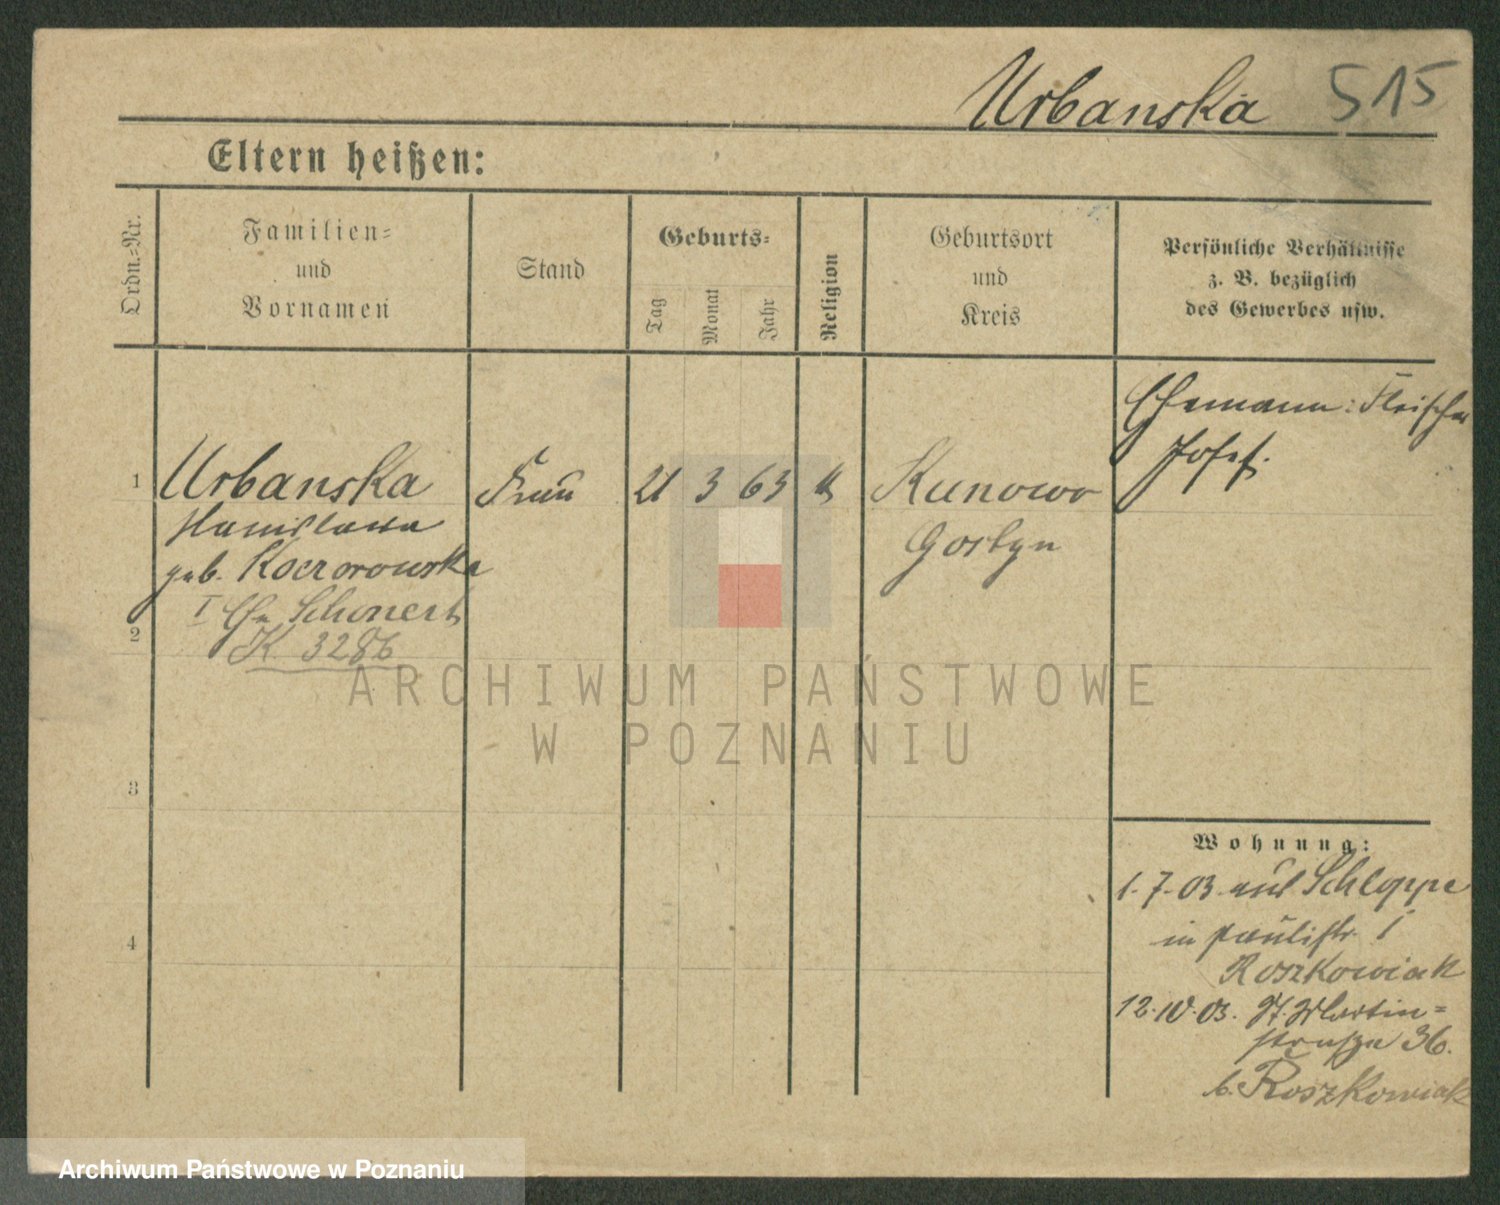 Urbanska 515
Eltern heißen:
Ordn.-Nr.
Familien-
und
Vornamen
Stand
Geburts-
Tag
Monat
Jahr
Religion
Geburtsort
und
Kreis
Persönliche Verhältnisse
z. B. bezüglich
des Gewerbes usw.
Ehemann: Fleischer
Josef.
1 Urbanska Frau 21 3 63 k Kunowo
Stanislawa Gostyn
geb. Koczorowska
I Ehe Schonert
2
K 3286
ARCHIWUM PAŃSTWOWE
W POZNANIU
3
4
Wohnung:
1.7.03. aus Schloppe
in Paulistr. 1
Roszkowiak
12.10.03. St. Martin-
straße 36.
b. Roszkowiak
Archiwum Państwowe w Poznaniu